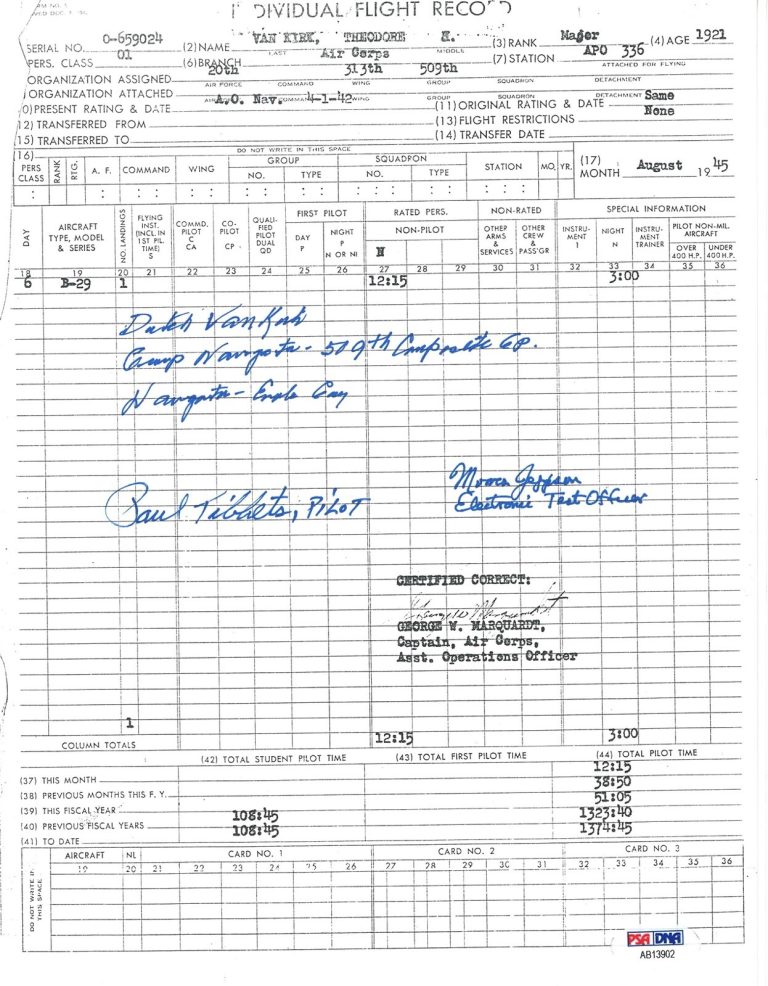 INDIVIDUAL FLIGHT RECORD
SERIAL NO. O-659024 (2) NAME VAN KIRK, THEODORE K. (3) RANK Major (4) AGE 1921
LAST MIDDLE
PERS. CLASS 01 (6) BRANCH Air Corps (7) STATION APO 336
ORGANIZATION ASSIGNED 20th 313th 509th ATTACHED FOR FLYING
AIR FORCE COMMAND WING GROUP SQUADRON DETACHMENT
ORGANIZATION ATTACHED
COMMAND WING GROUP SQUADRON DETACHMENT
0) PRESENT RATING & DATE A.O. Nav. 4-1-42 (11) ORIGINAL RATING & DATE Same
12) TRANSFERRED FROM (13) FLIGHT RESTRICTIONS None
15) TRANSFERRED TO (14) TRANSFER DATE
(16) DO NOT WRITE IN THIS SPACE
PERS CLASS RANK RTG. A. F. COMMAND WING GROUP NO. TYPE SQUADRON NO. TYPE STATION MO. YR. (17) MONTH August 1945
DAY AIRCRAFT TYPE, MODEL & SERIES NO. LANDINGS FLYING INST. (INCL IN 1ST PIL. TIME) S COMMD. PILOT C CA CO-PILOT CP QUALI-FIED PILOT DUAL QD FIRST PILOT DAY P NIGHT P N OR NI RATED PERS. NON-PILOT N NON-RATED OTHER ARMS & SERVICES OTHER CREW & PASS'GR SPECIAL INFORMATION INSTRU-MENT I NIGHT N INSTRU-MENT TRAINER PILOT NON-MIL. AIRCRAFT OVER 400 H.P. UNDER 400 H.P.
18 19 20 21 22 23 24 25 26 27 28 29 30 31 32 33 34 35 36
6 B-29 1 12:15 3:00
Dutch VanKirk
Group Navigator - 509th Composite Gp.
Navigator - Enola Gay
Morris Jeppson
Electronic Test Officer
Paul Tibbets, PILOT
CERTIFIED CORRECT:
George W Marquardt
GEORGE W. MARQUARDT,
Captain, Air Corps,
Asst. Operations Officer
1
COLUMN TOTALS 12:15 3:00
(42) TOTAL STUDENT PILOT TIME (43) TOTAL FIRST PILOT TIME (44) TOTAL PILOT TIME
(37) THIS MONTH 12:15
(38) PREVIOUS MONTHS THIS F. Y. 38:50
(39) THIS FISCAL YEAR 51:05
(40) PREVIOUS FISCAL YEARS 108:45 1323:40
(41) TO DATE 108:45 1374:45
AIRCRAFT NL CARD NO. 1 CARD NO. 2 CARD NO. 3
19 20 21 22 23 24 25 26 27 28 29 30 31 32 33 34 35 36
DO NOT WRITE IN THIS SPACE
PSA DNA
AB13902